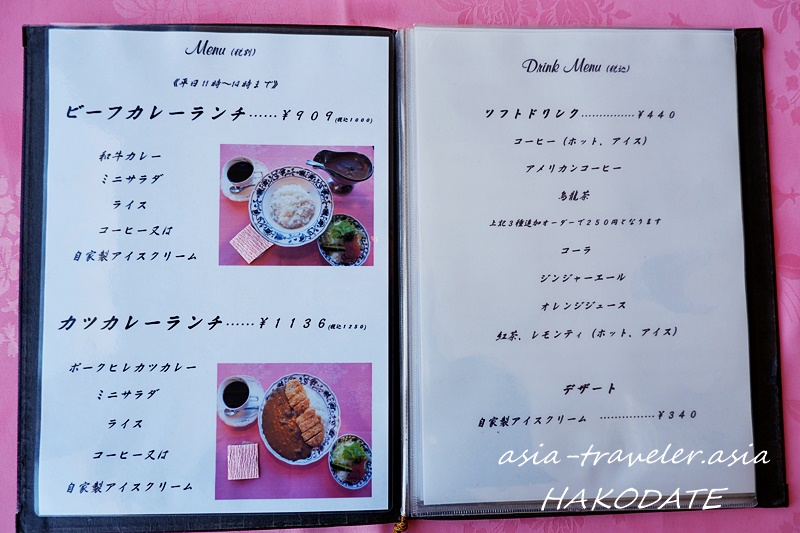 Menu (税別)
《平日11時～14時まで》
ビーフカレーランチ……￥909(税込1000)
和牛カレー
ミニサラダ
ライス
コーヒー又は
自家製アイスクリーム
カツカレーランチ……￥1136(税込1250)
ポークヒレカツカレー
ミニサラダ
ライス
コーヒー又は
自家製アイスクリーム
Drink Menu (税込)
ソフトドリンク……………￥440
コーヒー（ホット、アイス）
アメリカンコーヒー
烏龍茶
上記3種追加オーダーで250円となります
コーラ
ジンジャーエール
オレンジジュース
紅茶、レモンティ（ホット、アイス）
デザート
自家製アイスクリーム ……………￥340
asia-traveler.asia
HAKODATE